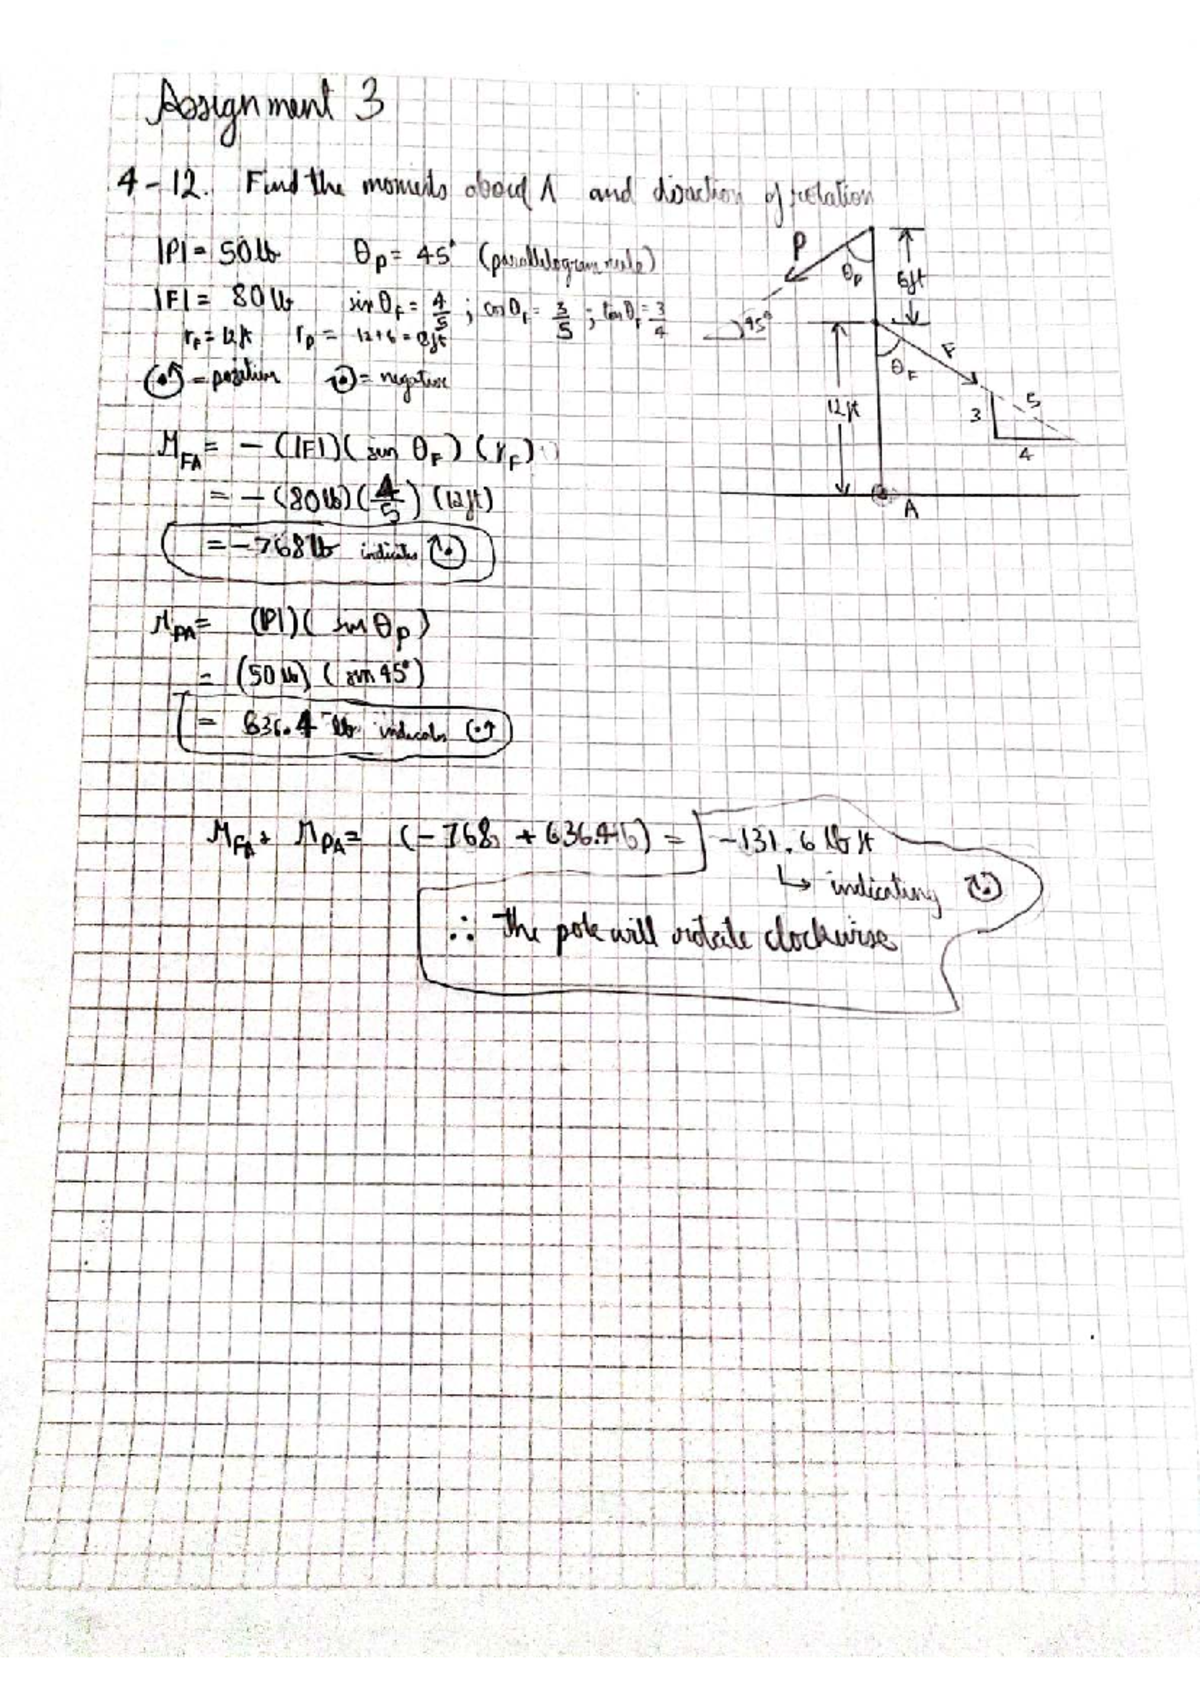 Assignment 3
4-12. Find the moments about A and direction of rotation
|P| = 50 lb θP = 45° (parallelogram rule)
|F| = 80 lb sin θF = 4/5 ; cos θF = 3/5 ; tan θF = 3/4
rF = 12 ft rP = 12+6 =
= positive = negative
MFA = - (|F|)(sin θF)(rF)
= - (80 lb)(4/5)(12 ft)
= -768 lb indicates
MPA = (|P|)(sin θP)
= (50 lb)(sin 45°)
= 636.4 lb indicates
MFA + MPA = (-768 + 636.4) = -131.6 lb ft
↳ indicating
∴ the pole will rotate clockwise
P
θP
6 ft
45°
F
θF
12 ft
5
3
4
A